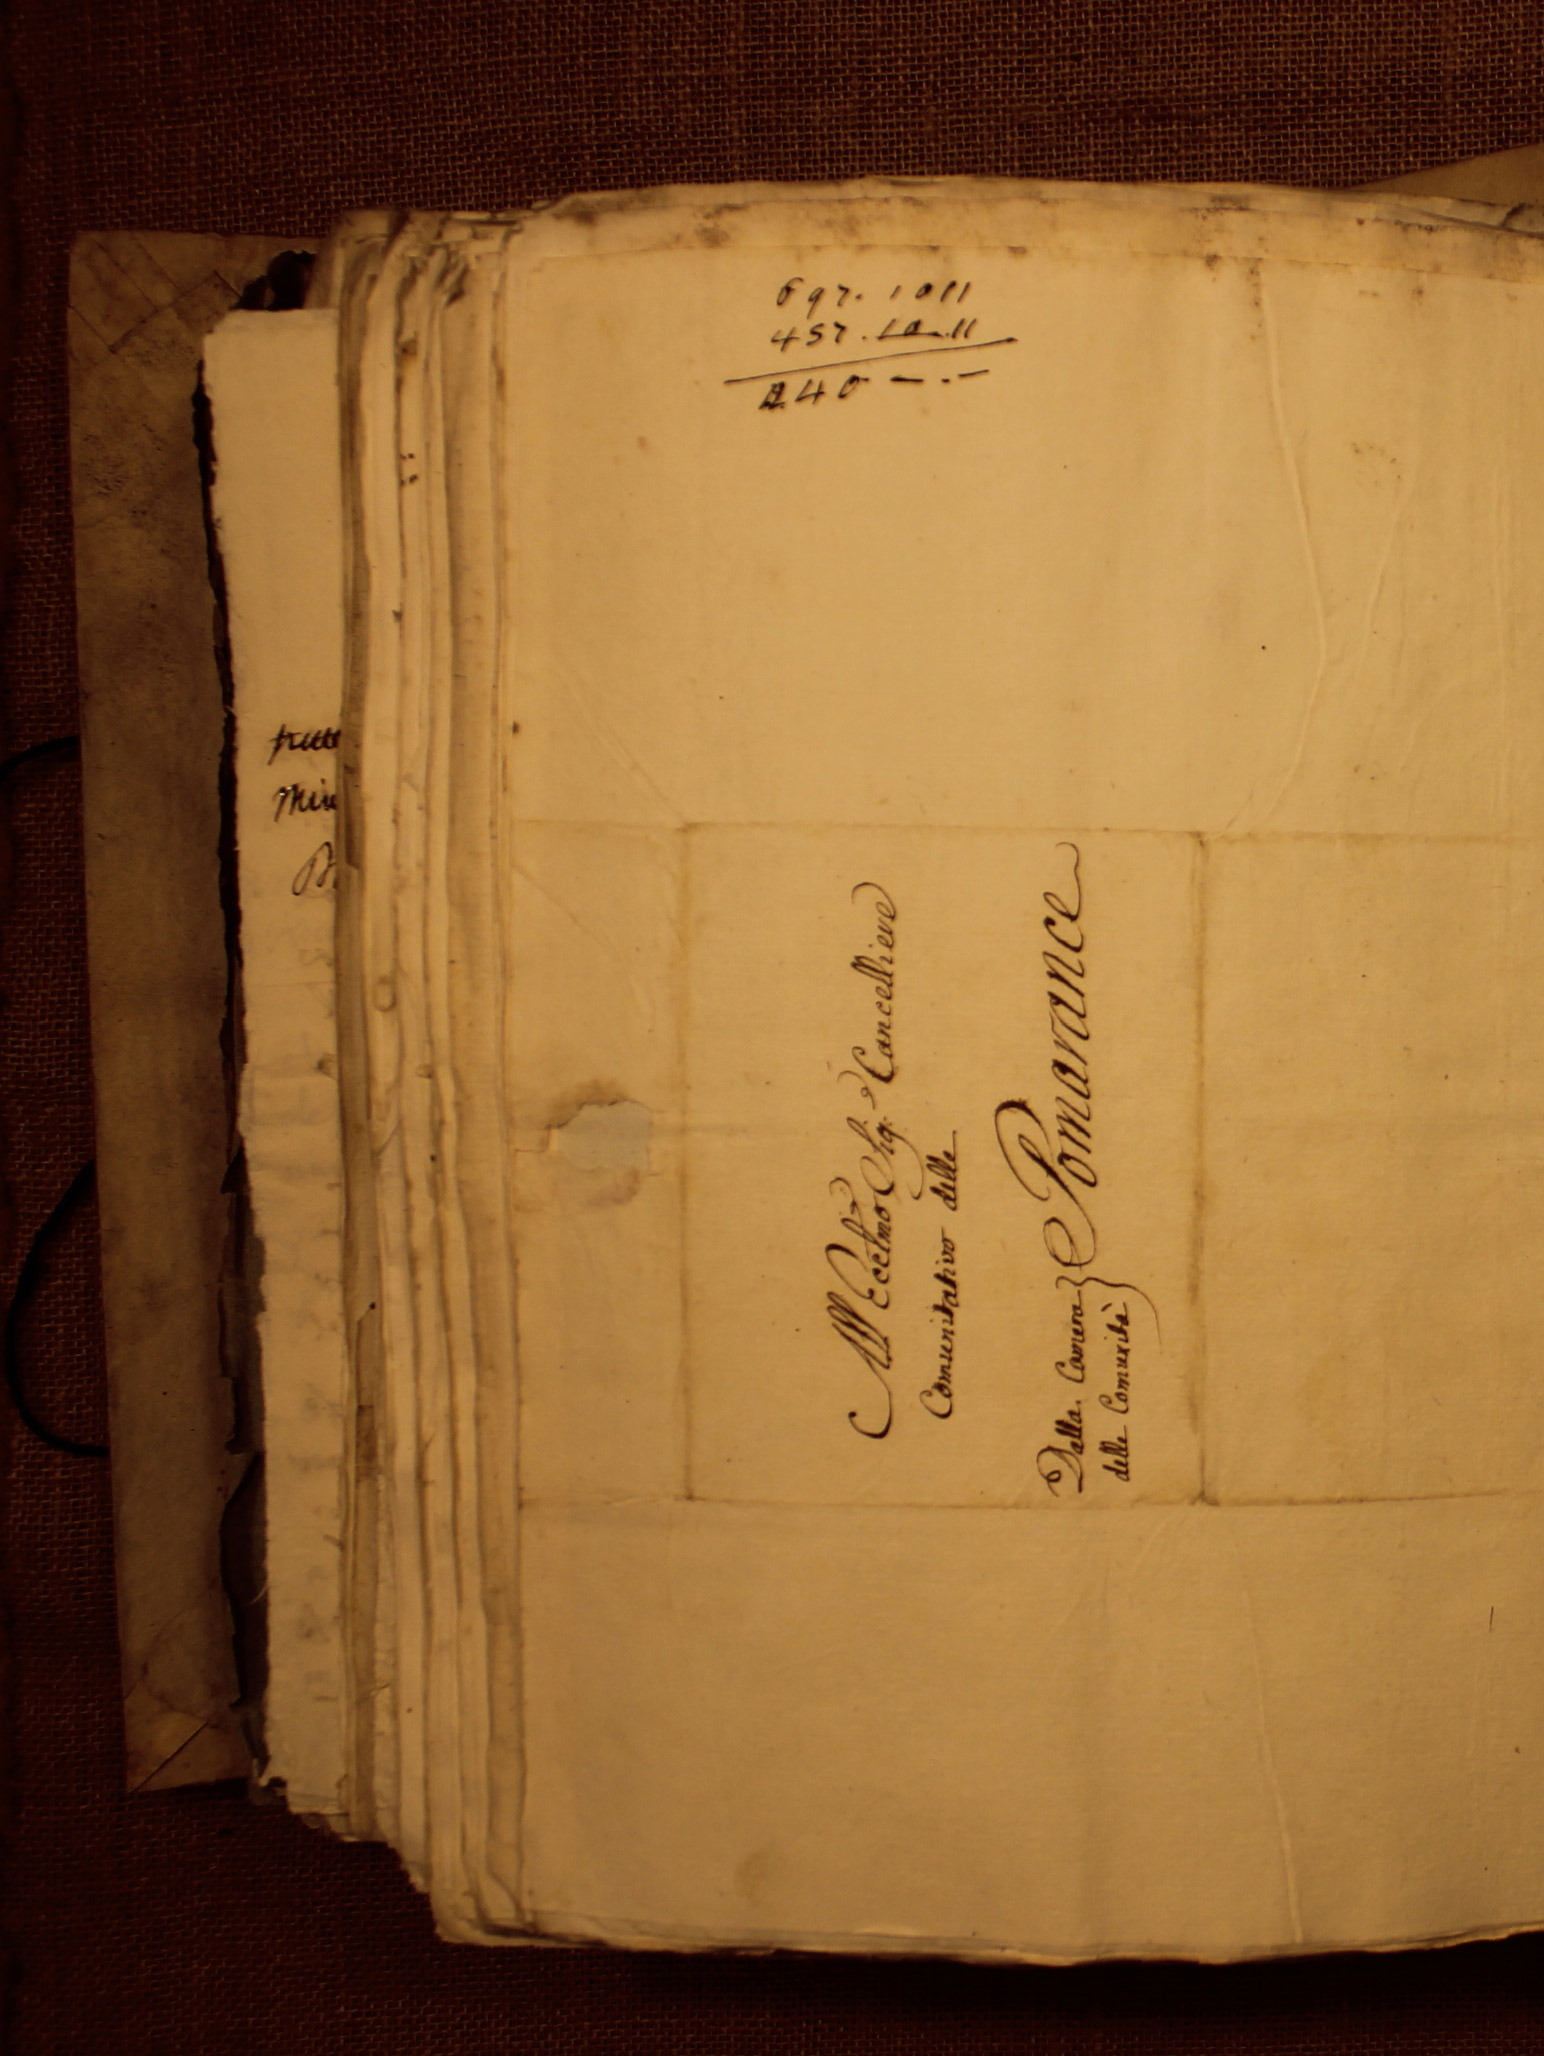 697. 10 11
457. 10. 11
240 — . —
All Ecclmo Sig.e Cancelliere
Comunitativo delle
Pomarance
Dalla Camera
delle Comunità